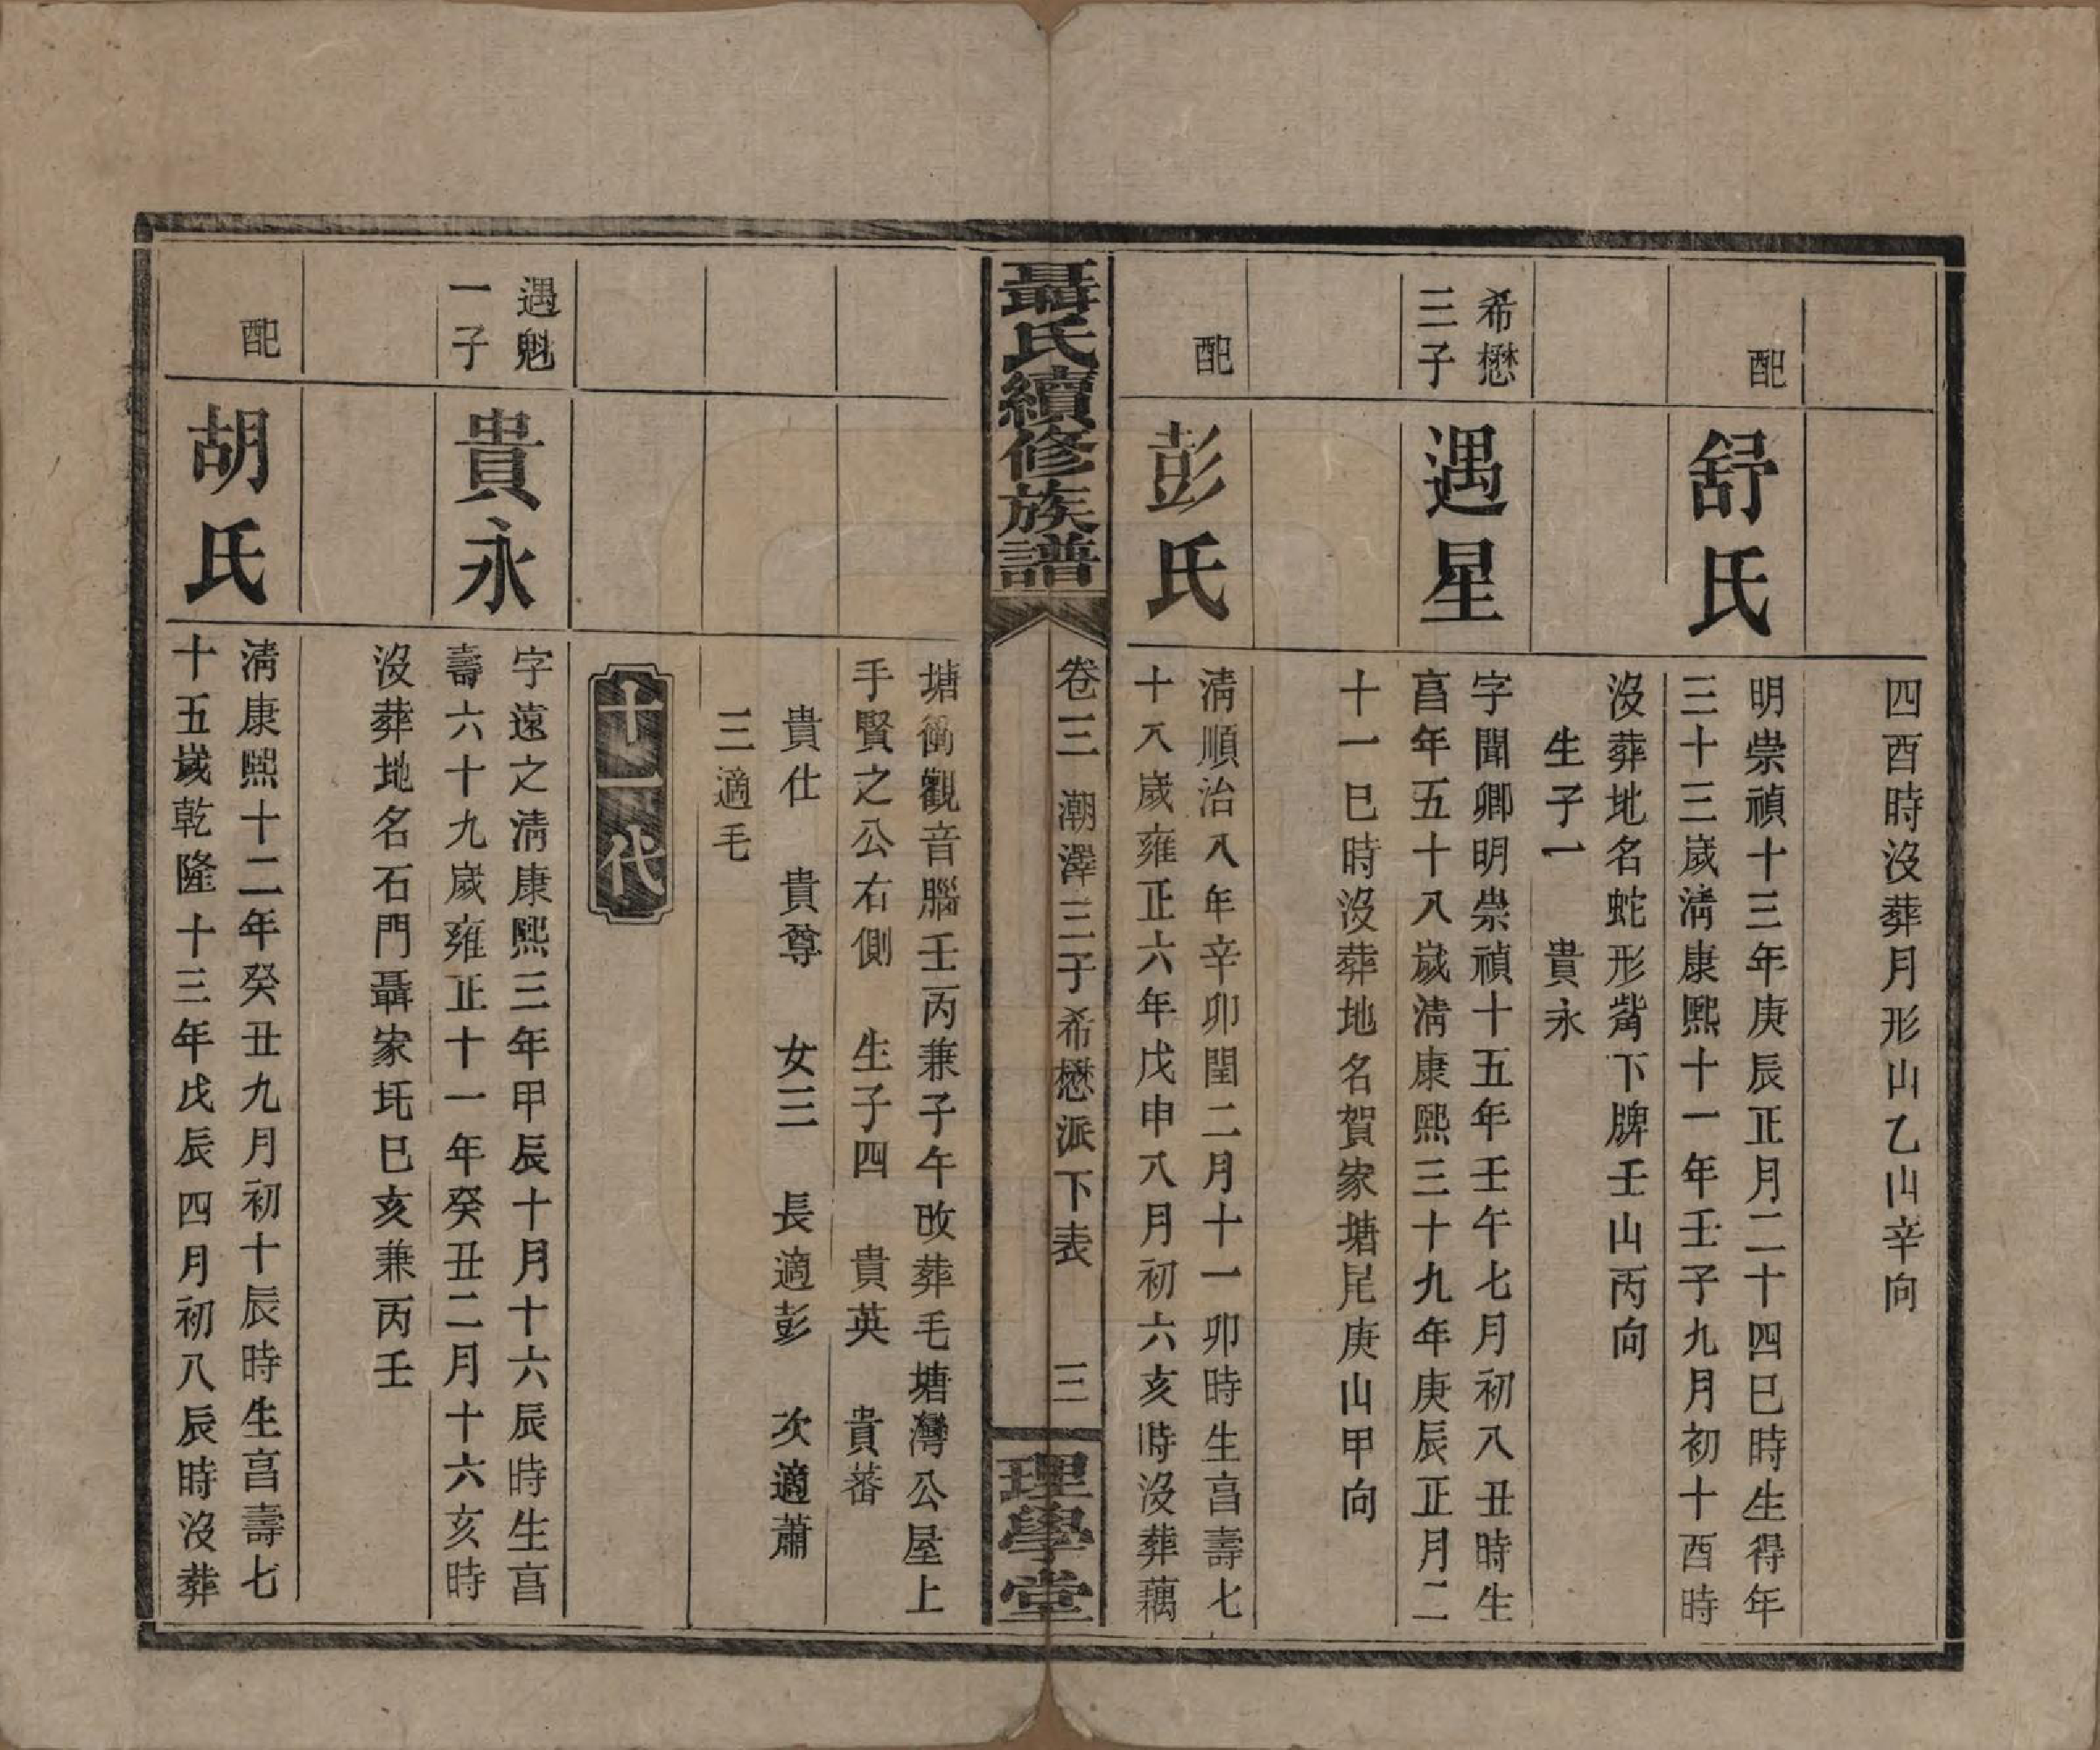 四酉時沒葬月形山乙山辛向
配
舒氏
明崇禎十三年庚辰正月二十四巳時生得年
三十三歲淸康熙十一年壬子九月初十酉時
沒葬地名蛇形嘴下牌壬山丙向
生子一　貴永
希懋
三子
遇星
字聞卿明崇禎十五年壬午七月初八丑時生
亯年五十八歲淸康熙三十九年庚辰正月二
十一巳時沒葬地名賀家塘尾庚山甲向
配
彭氏
淸順治八年辛卯閏二月十一卯時生亯壽七
十八歲雍正六年戊申八月初六亥時沒葬藕
聶氏續修族譜
卷三　潮澤三子希懋派下表　三
理學堂
塘衝觀音腦壬丙兼子午改葬毛塘灣公屋上
手賢之公右側　生子四　貴英　貴蕃
貴仕　貴尊　女三　長適彭　次適蕭
三適毛
十一代
遇魁
一子
貴永
字遠之淸康熙三年甲辰十月十六辰時生亯
壽六十九歲雍正十一年癸丑二月十六亥時
沒葬地名石門聶家圫巳亥兼丙壬
配
胡氏
淸康熙十二年癸丑九月初十辰時生亯壽七
十五歲乾隆十三年戊辰四月初八辰時沒葬